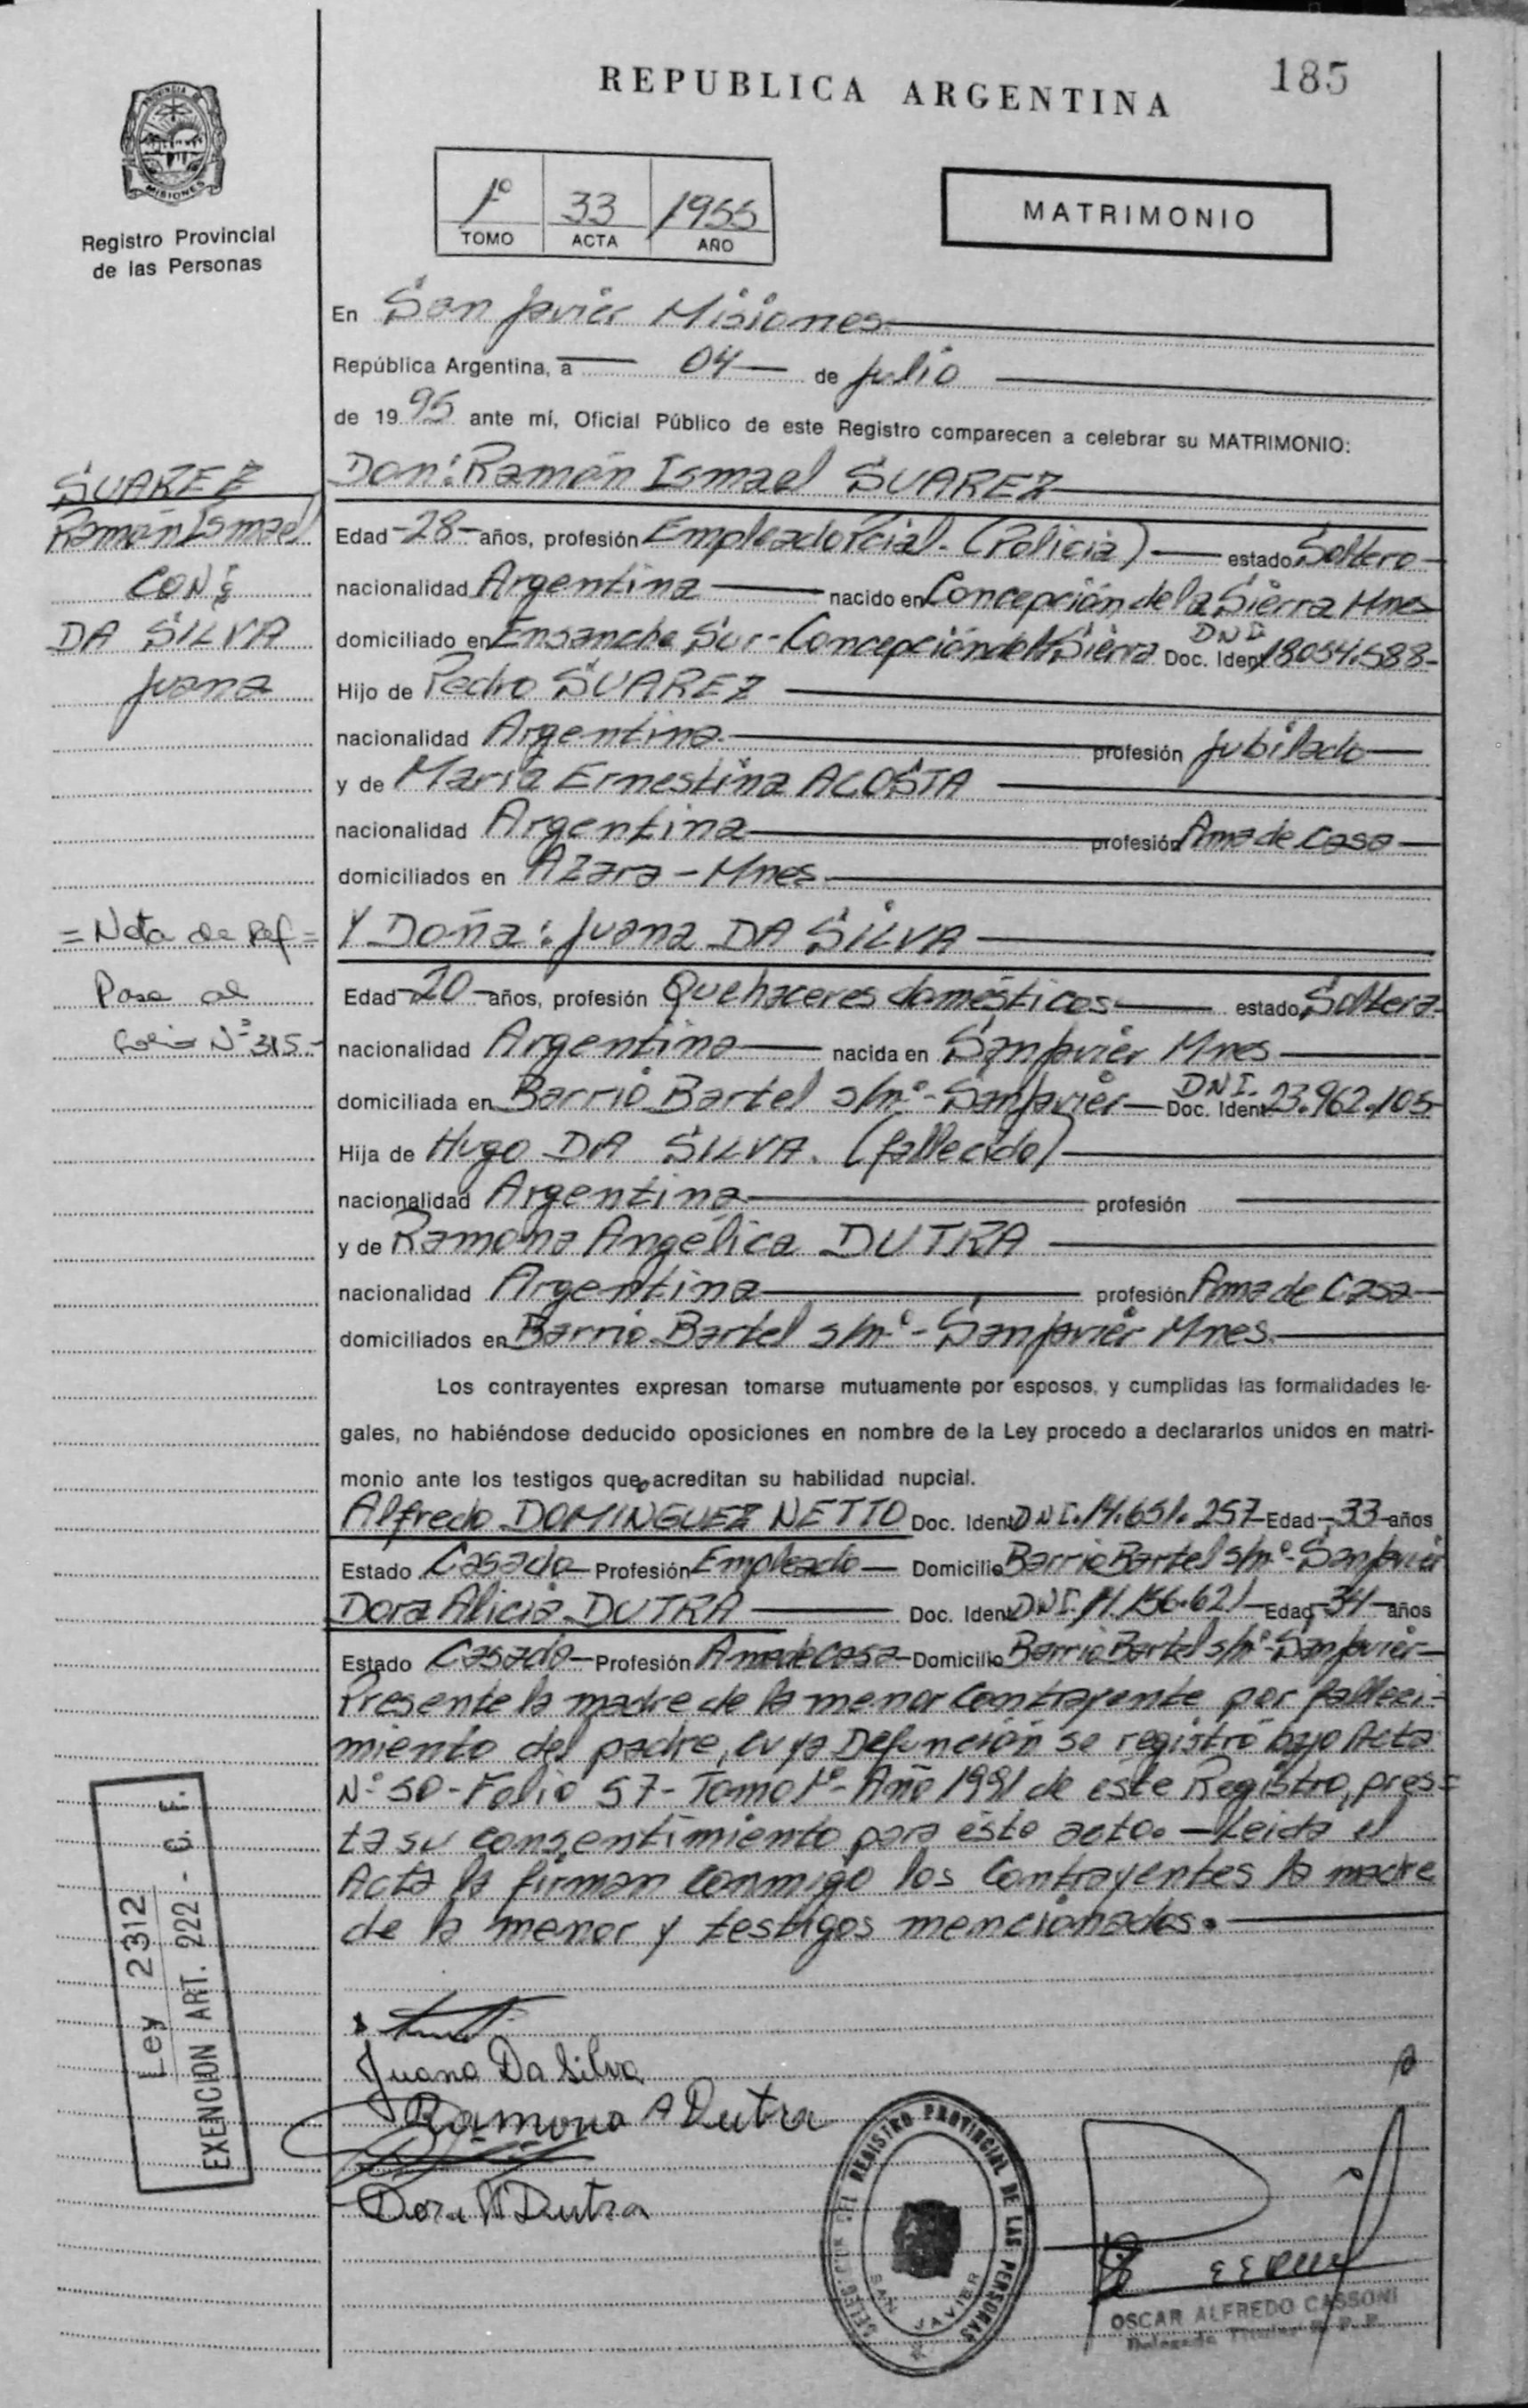 REPUBLICA ARGENTINA
185
PROVINCIA DE
MISIONES
Registro Provincial
de las Personas
1º 33 1955
TOMO ACTA AÑO
MATRIMONIO
En San Javier Misiones
República Argentina, a 04 de Julio
de 1995 ante mí, Oficial Público de este Registro comparecen a celebrar su MATRIMONIO:
SUAREZ
Ramón Ismael
CON:
DA SILVA
Juana
Don: Ramón Ismael SUAREZ
Edad -28- años, profesión Empleado Pcial. (Policia) estado Soltero
nacionalidad Argentina nacido en Concepción de la Sierra Mnes
domiciliado en Ensanche Sur - Concepción de la Sierra Doc. Ident. DNI 18.054.588-
Hijo de Pedro SUAREZ
nacionalidad Argentina profesión Jubilado
y de María Ernestina ACOSTA
nacionalidad Argentina profesión Ama de Casa
domiciliados en Azara - Mnes.
= Nota de Ref =
Pasa al
folio Nº 315.-
Y Doña: Juana DA SILVA
Edad -20- años, profesión Quehaceres domésticos estado Soltera
nacionalidad Argentina nacida en San Javier Mnes
domiciliada en Barrio Bartel s/nº - San Javier Doc. Ident. DNI. 23.962.105
Hija de Hugo DA SILVA. (fallecido)
nacionalidad Argentina profesión
y de Ramona Angélica DUTRA
nacionalidad Argentina profesión Ama de Casa
domiciliados en Barrio Bartel s/nº - San Javier Mnes.
Los contrayentes expresan tomarse mutuamente por esposos, y cumplidas las formalidades le-
gales, no habiéndose deducido oposiciones en nombre de la Ley procedo a declararlos unidos en matri-
monio ante los testigos que acreditan su habilidad nupcial.
Alfredo DOMINGUEZ NETTO Doc. Ident. DNI. 14.651.257 Edad -33- años
Estado Casado Profesión Empleado Domicilio Barrio Bartel s/nº - San Javier
Dora Alicia DUTRA Doc. Ident. DNI. 14.156.621 Edad -34- años
Estado Casada Profesión Ama de casa Domicilio Barrio Bartel s/nº - San Javier
Presente la madre de la menor contrayente por falleci-
miento del padre, cuya Defunción se registró bajo Acta
Nº 50 - Folio 57 - Tomo 1º - Año 1991 de este Registro, pres=
ta su consentimiento para éste acto. - Leida el
Acta la firman conmigo los Contrayentes la madre
de la menor y testigos mencionados.
Ley 2312
EXENCION ART. 222 - C. F.
Juana Da Silva
Ramona A Dutra
Dora A Dutra
REGISTRO PROVINCIAL DE LAS PERSONAS
SAN JAVIER
OSCAR ALFREDO CASSONI
Delegado Titular R. P. P.